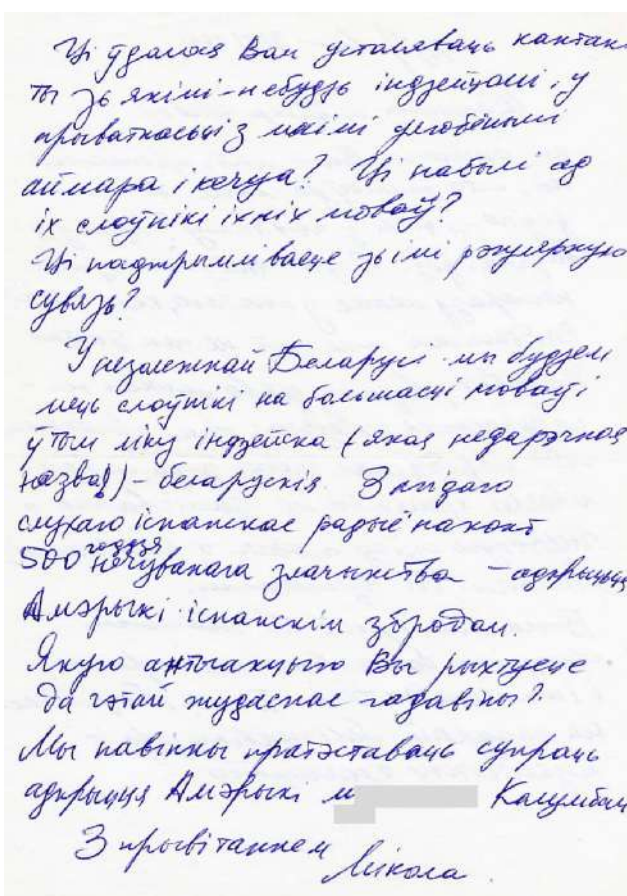 Ці ўдалося Вам устанавіць кантак-
ты зь якімі-небудзь індзейцамі, у
прыватнасьці з маімі улюбёнымі
аймара і кечуа? Ці набылі ад
іх слоўнікі іхніх моваў?
Ці падтрымліваеце зь імі рэгулярную
сувязь?
У незалежнай Беларусі мы будзем
мець слоўнікі на большасці моваў і
ў тым ліку індзейска (якая недарэчная
назва!) - беларускія. З агідаю
слухаю іспанскае радыё наконт
500годдзя нечуванага злачынства - адкрыцця
Амэрыкі іспанскім збродам.
Якую антыакцыю Вы рыхтуеце
да гэтай жудаснае гадавіны?
Мы павінны пратэставаць супраць
адкрыцця Амэрыкі Калумбам
З прывітаннем Мікола